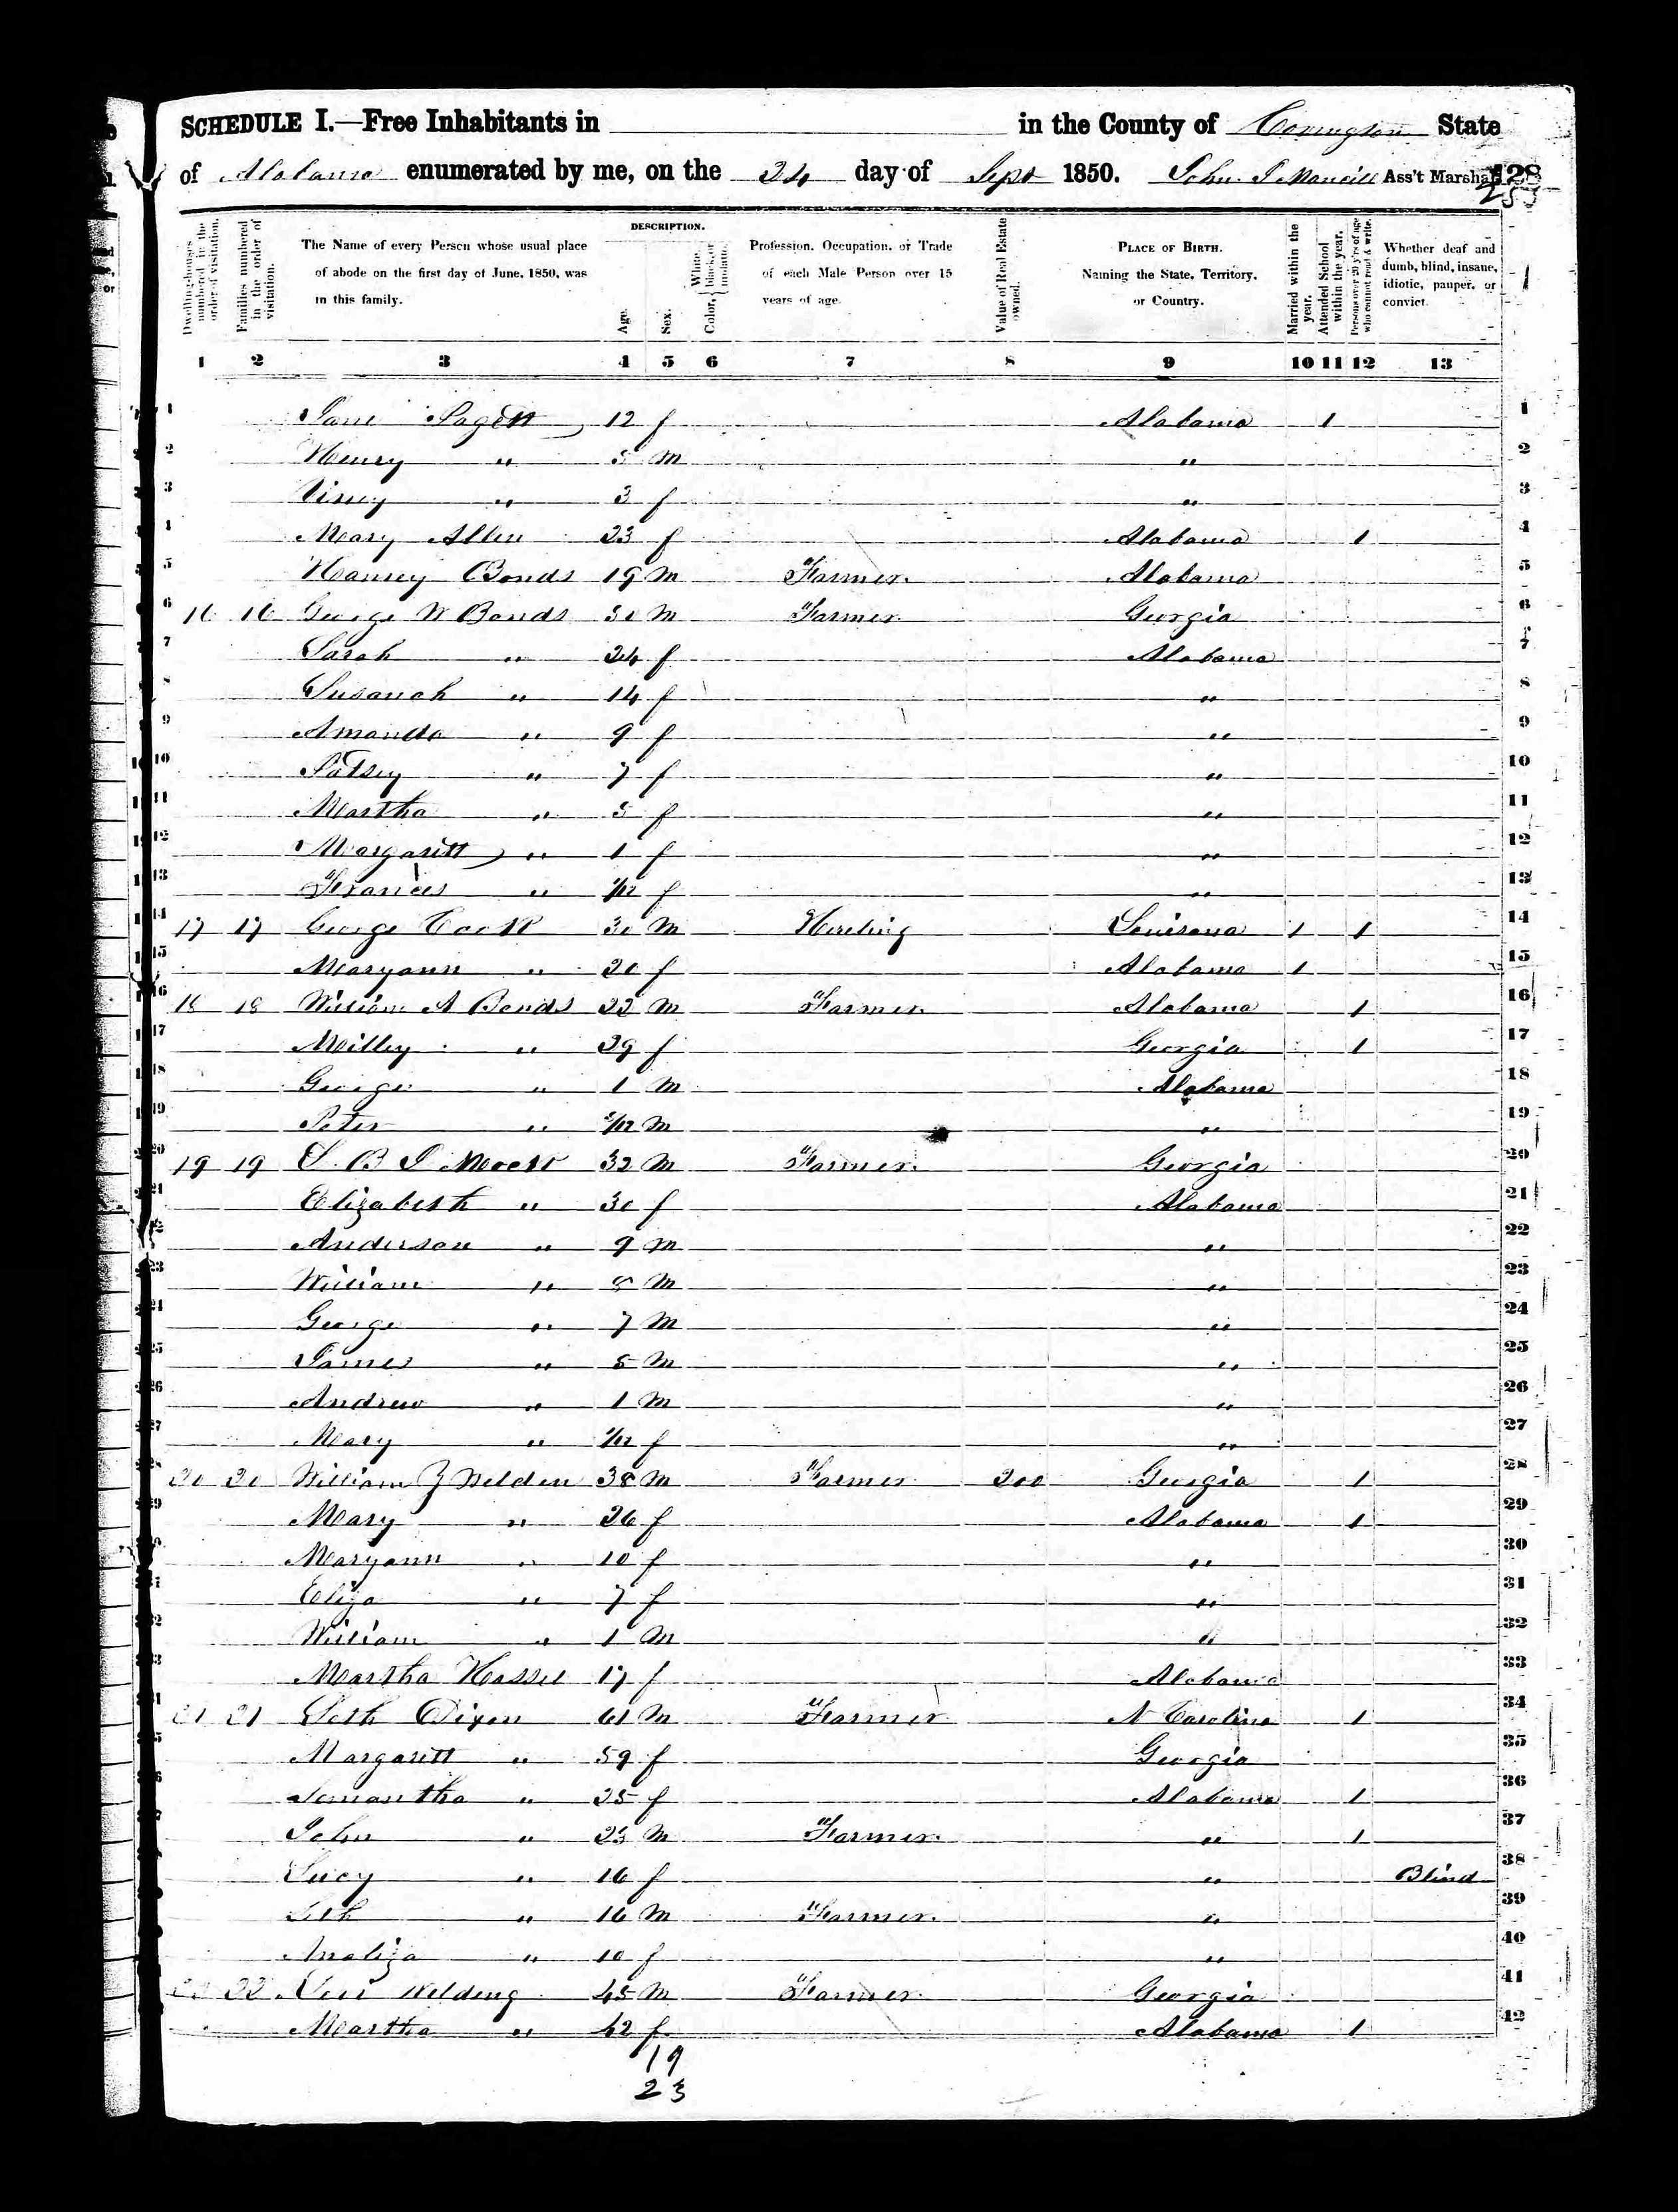 SCHEDULE I.—Free Inhabitants in in the County of Covington State
of Alabama enumerated by me, on the 24 day of Sept 1850. John Ass't Marshal 128
Dwelling-houses numbered in the order of visitation.
Families numbered in the order of visitation.
The Name of every Person whose usual place of abode on the first day of June, 1850, was in this family.
DESCRIPTION.
Age.
Sex.
Color, White, black, or mulatto.
Profession, Occupation, or Trade of each Male Person over 15 years of age.
Value of Real Estate owned.
PLACE OF BIRTH. Naming the State, Territory, or Country.
Married within the year.
Attended School within the year.
Persons over 20 y'rs of age who cannot read & write.
Whether deaf and dumb, blind, insane, idiotic, pauper, or convict.
1 2 3 4 5 6 7 8 9 10 11 12 13
1 Jane 12 f Alabama 1 1
2 Henry " 5 m " 2
3 Viney " 3 f " 3
4 Mary Allen 23 f Alabama 1 4
5 Bonds 19 M Farmer Alabama 5
6 16 16 George W Bonds 30 M Farmer Georgia 6
7 Sarah " 24 f Alabama 7
8 Susanah " 14 f " 8
9 Amanda " 9 f " 9
10 Patsey " 7 f " 10
11 Martha " 5 f " 11
12 Margarett " 1 f " 12
13 Frances " 1/12 f " 13
14 17 17 George 30 M Hireling Louisana 1 1 14
15 Maryann " 20 f Alabama 1 15
16 18 18 William A Bonds 22 M Farmer Alabama 1 16
17 Milley " 29 f Georgia 1 17
18 George " 1 M Alabama 18
19 Peter " /12 M " 19
20 19 19 B 32 M Farmer Georgia 20
21 Elizabeth " 30 f Alabama 21
22 Anderson " 9 M " 22
23 William " 8 M " 23
24 George " 7 M " 24
25 James " 5 M " 25
26 Andrew " 1 M " 26
27 Mary " 1/12 f " 27
28 20 20 William Z Welden 38 M Farmer 200 Georgia 1 28
29 Mary " 26 f Alabama 1 29
30 Maryann " 10 f " 30
31 Eliza " 7 f " 31
32 William " 1 M " 32
33 Martha Hassel 17 f Alabama 33
34 21 21 Seth Dixon 61 M Farmer N Carolina 1 34
35 Margarett " 59 f Georgia 35
36 Samantha " 25 f Alabama 1 36
37 John " 23 M Farmer " 1 37
38 Lucy " 16 f " Blind 38
39 Seth " 16 M Farmer " 39
40 Analiza " 10 f " 40
22 22 Levi Welding 45 M Farmer Georgia 41
Martha " 42 f Alabama 1 42
19
23